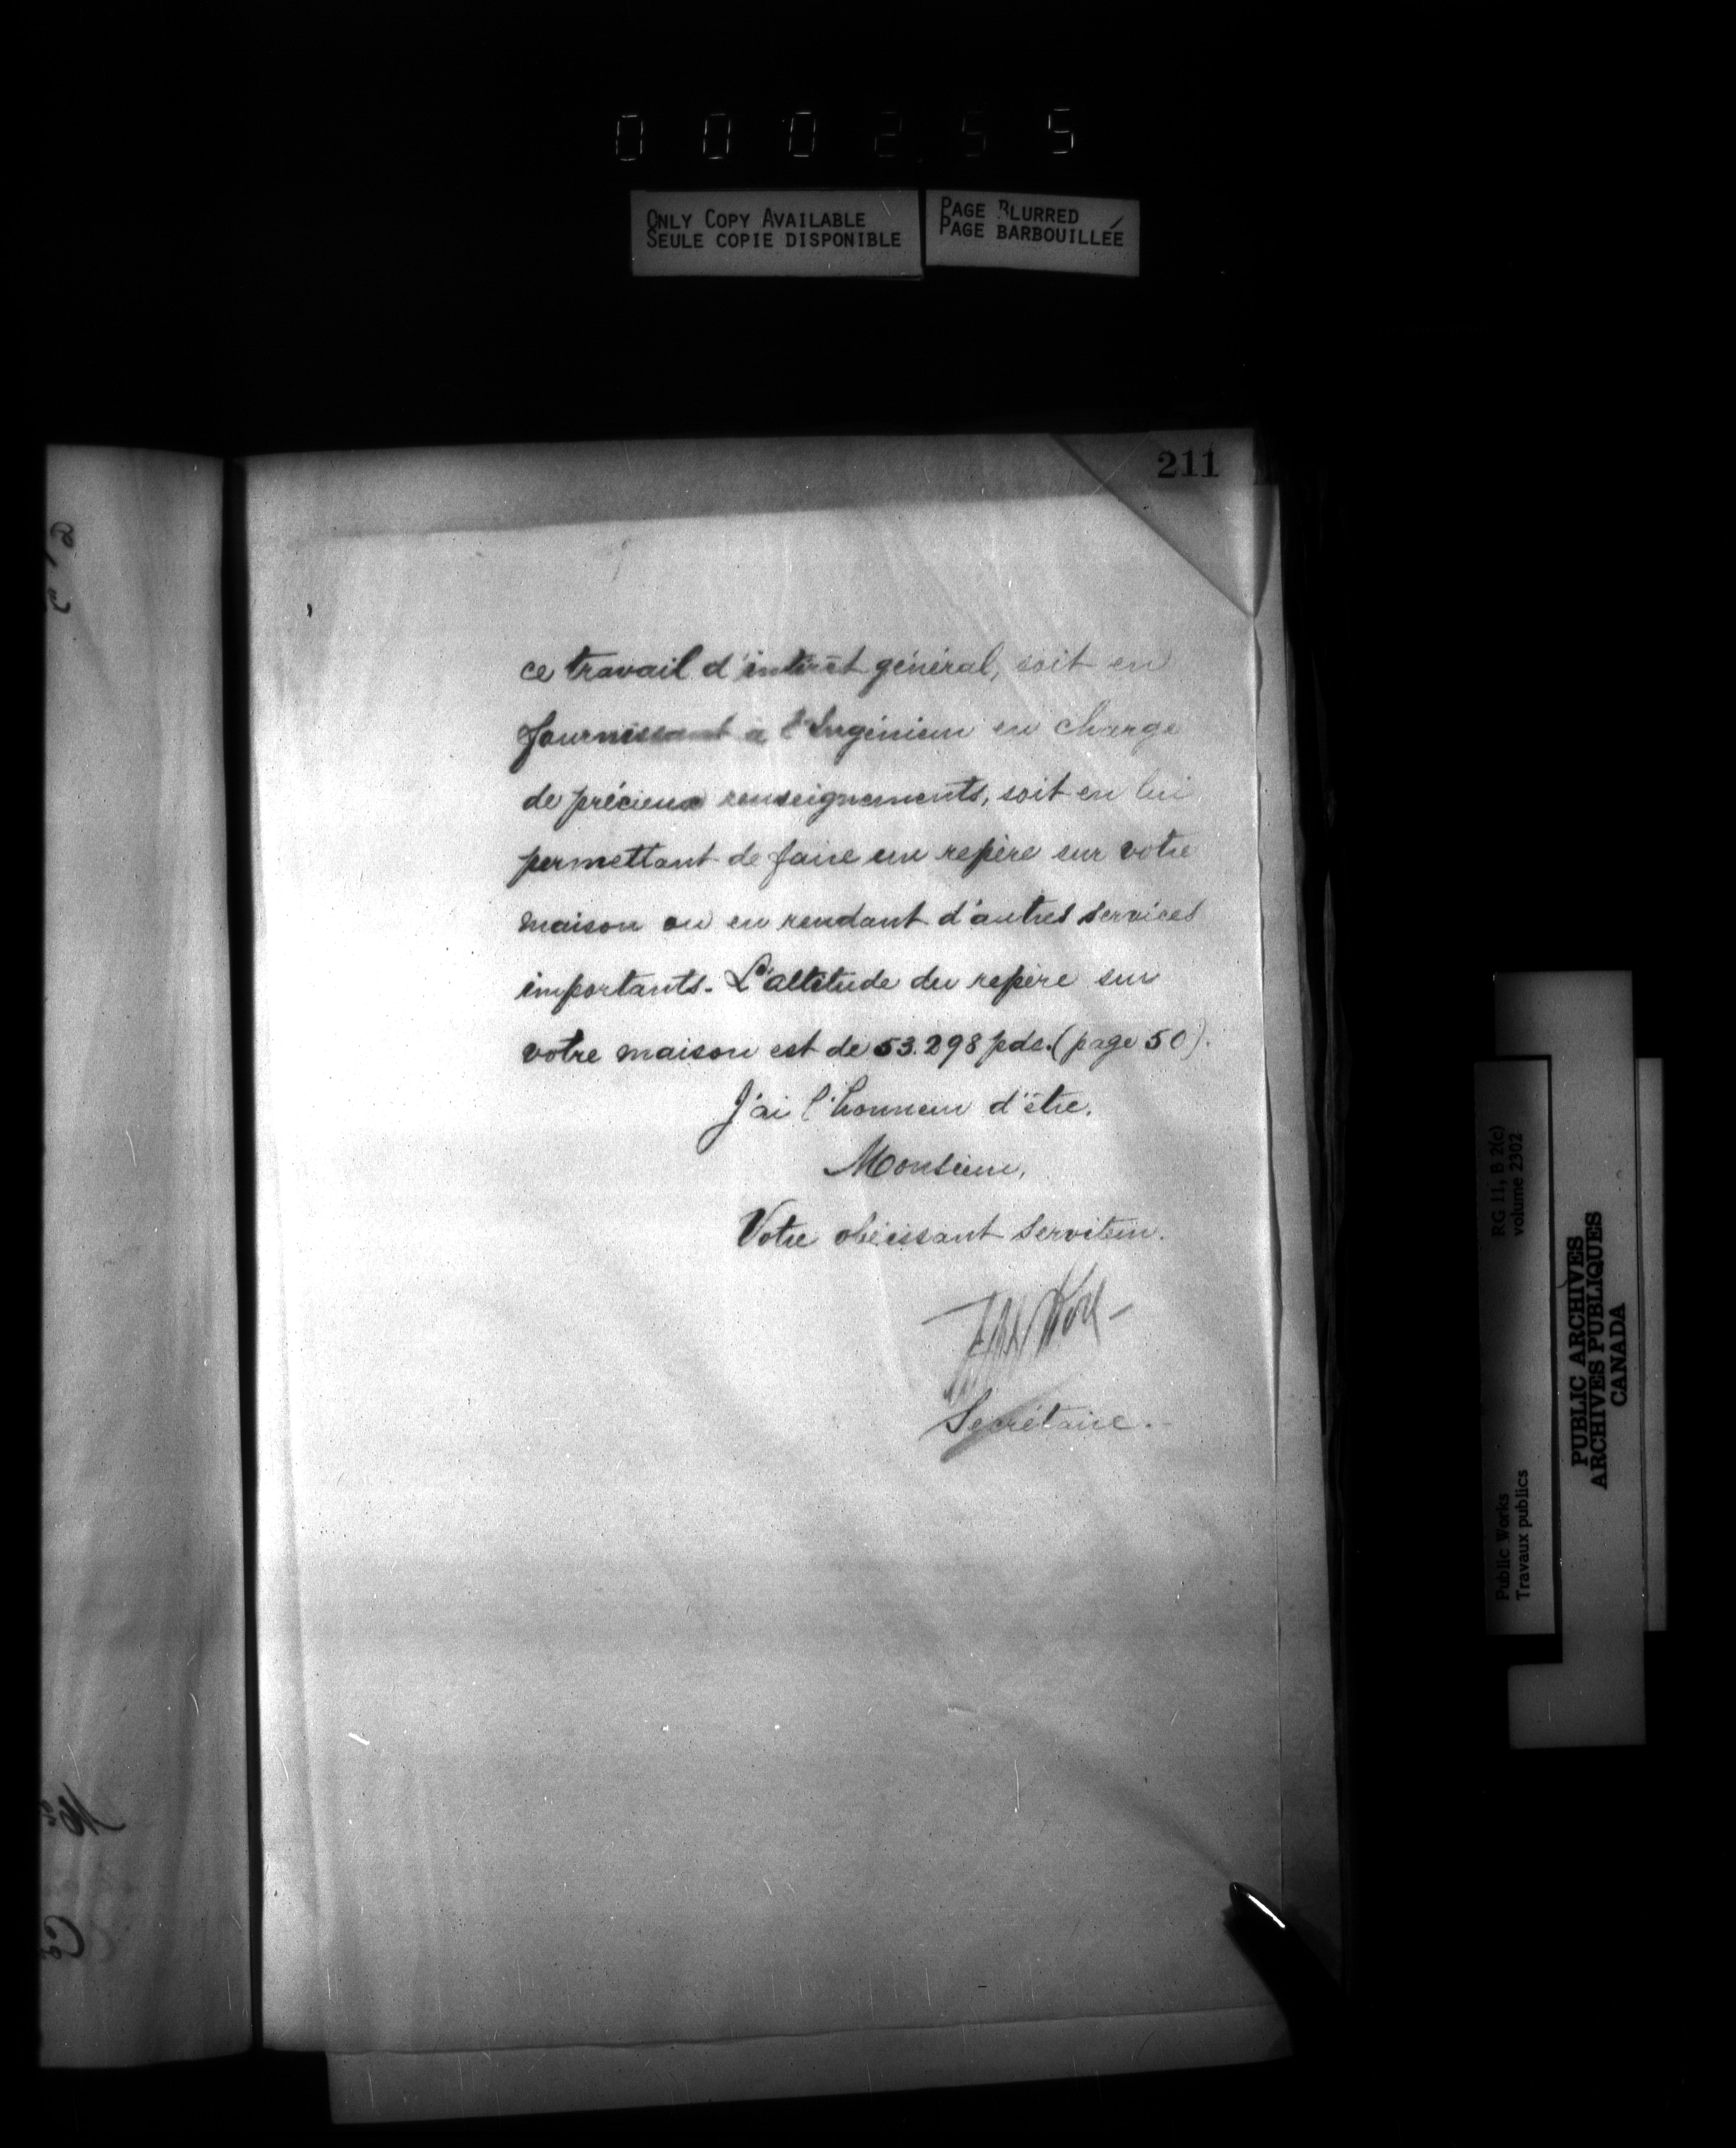 000255
ONLY COPY AVAILABLE
SEULE COPIE DISPONIBLE
PAGE BLURRED
PAGE BARBOUILLÉE
211
ce travail d'intérêt général, soit en
fournissant à l'Ingénieur en charge
de précieux renseignements, soit en lui
permettant de faire un repère sur votre
maison ou en rendant d'autres services
importants. L'altitude du repère sur
votre maison est de 53.298 pds. (page 50).
J'ai l'honneur d'être,
Monsieur,
Votre obéissant serviteur.
Secrétaire.
RG 11, B 2(c)
volume 2302
Public Works
Travaux publics
PUBLIC ARCHIVES
ARCHIVES PUBLIQUES
CANADA